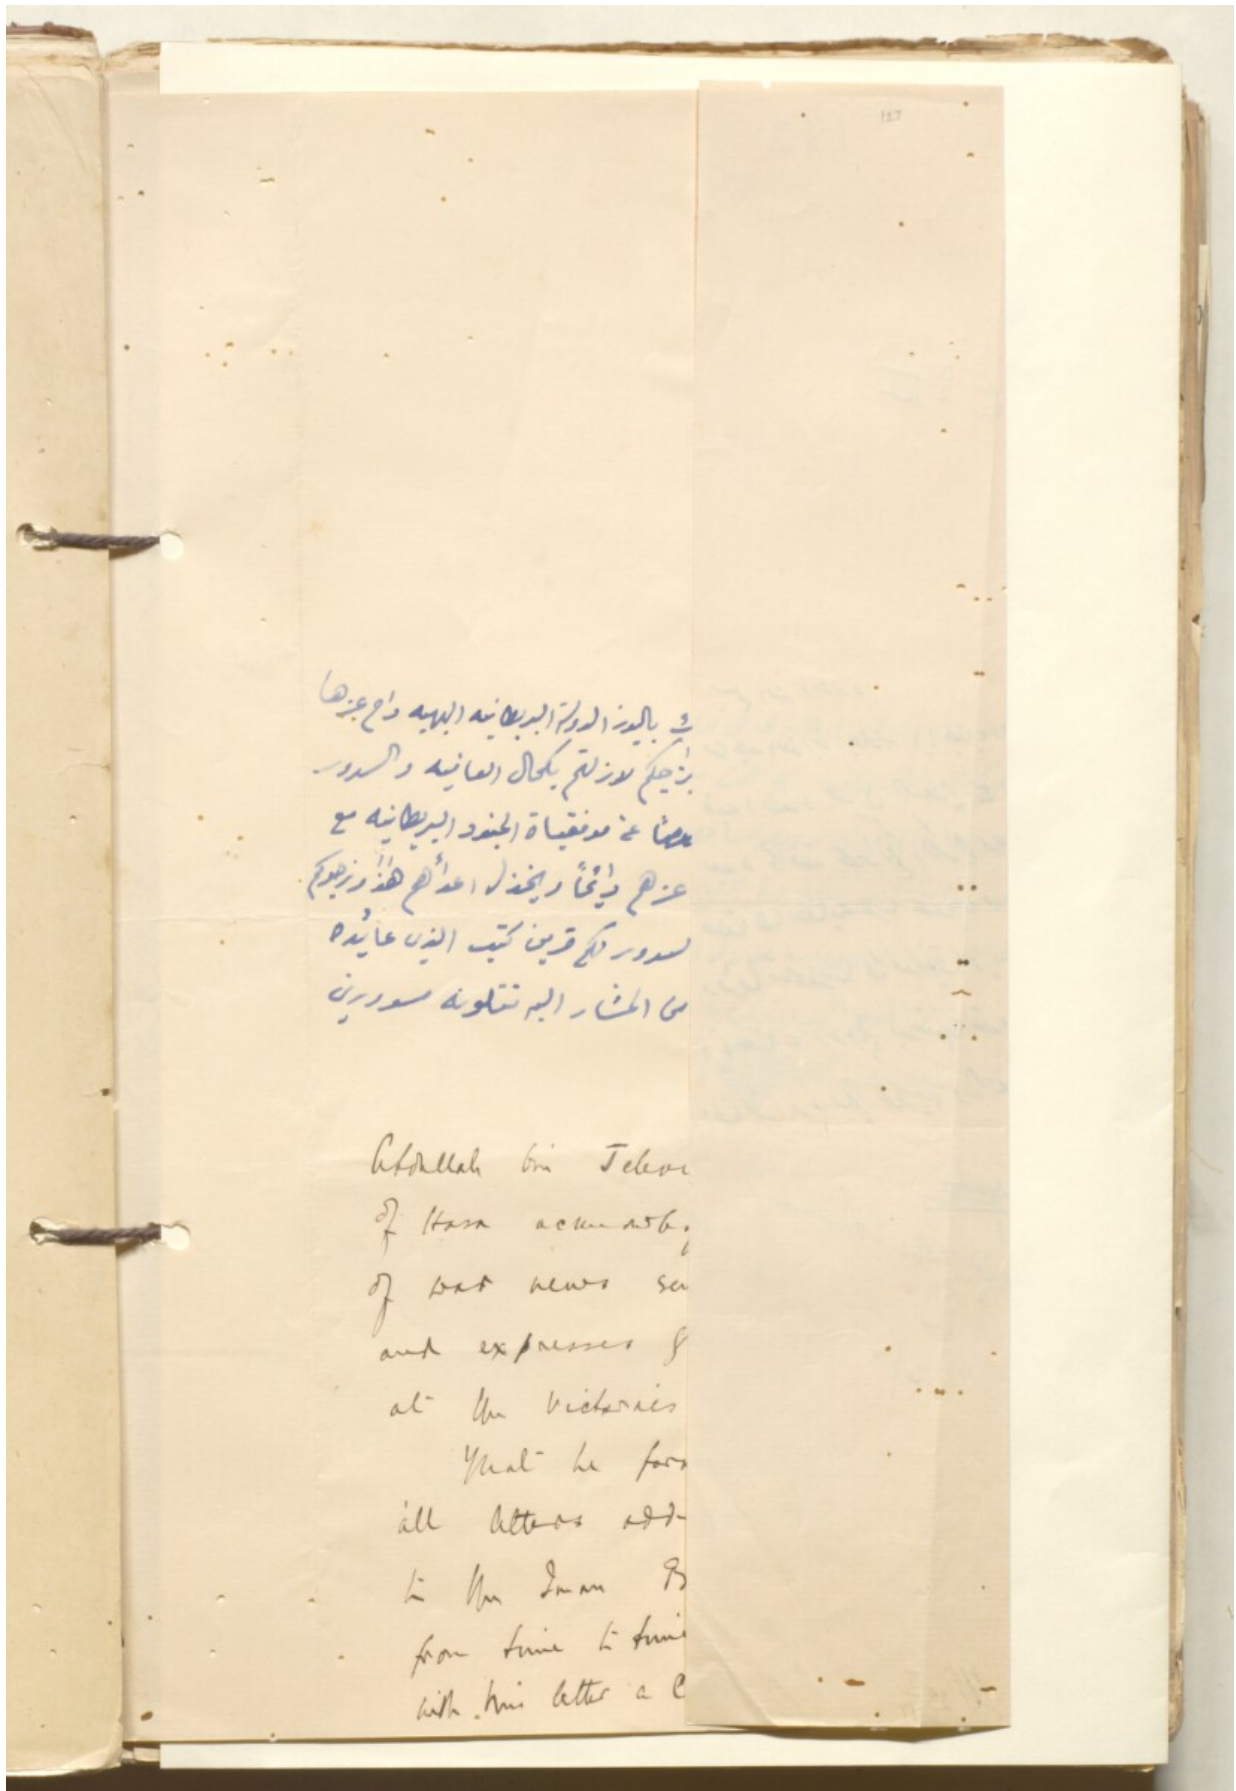 127
باليوز الدولة البريطانيه البهيه دام عزها
لازلتم بكمال العافيه والسرور
عن موفقياة الجنود البريطانيه مع
عزهم دائماً ويخذل اعدائهم هذا ونرجوكم
لكم قرين كتب الذي عائده
المشار اليه تتلونه مسرورين
Abdullah bin
of Hasa
of war news
and expresses
at the victories
That he
all letters
to the Imam
from time to time
with this letter a